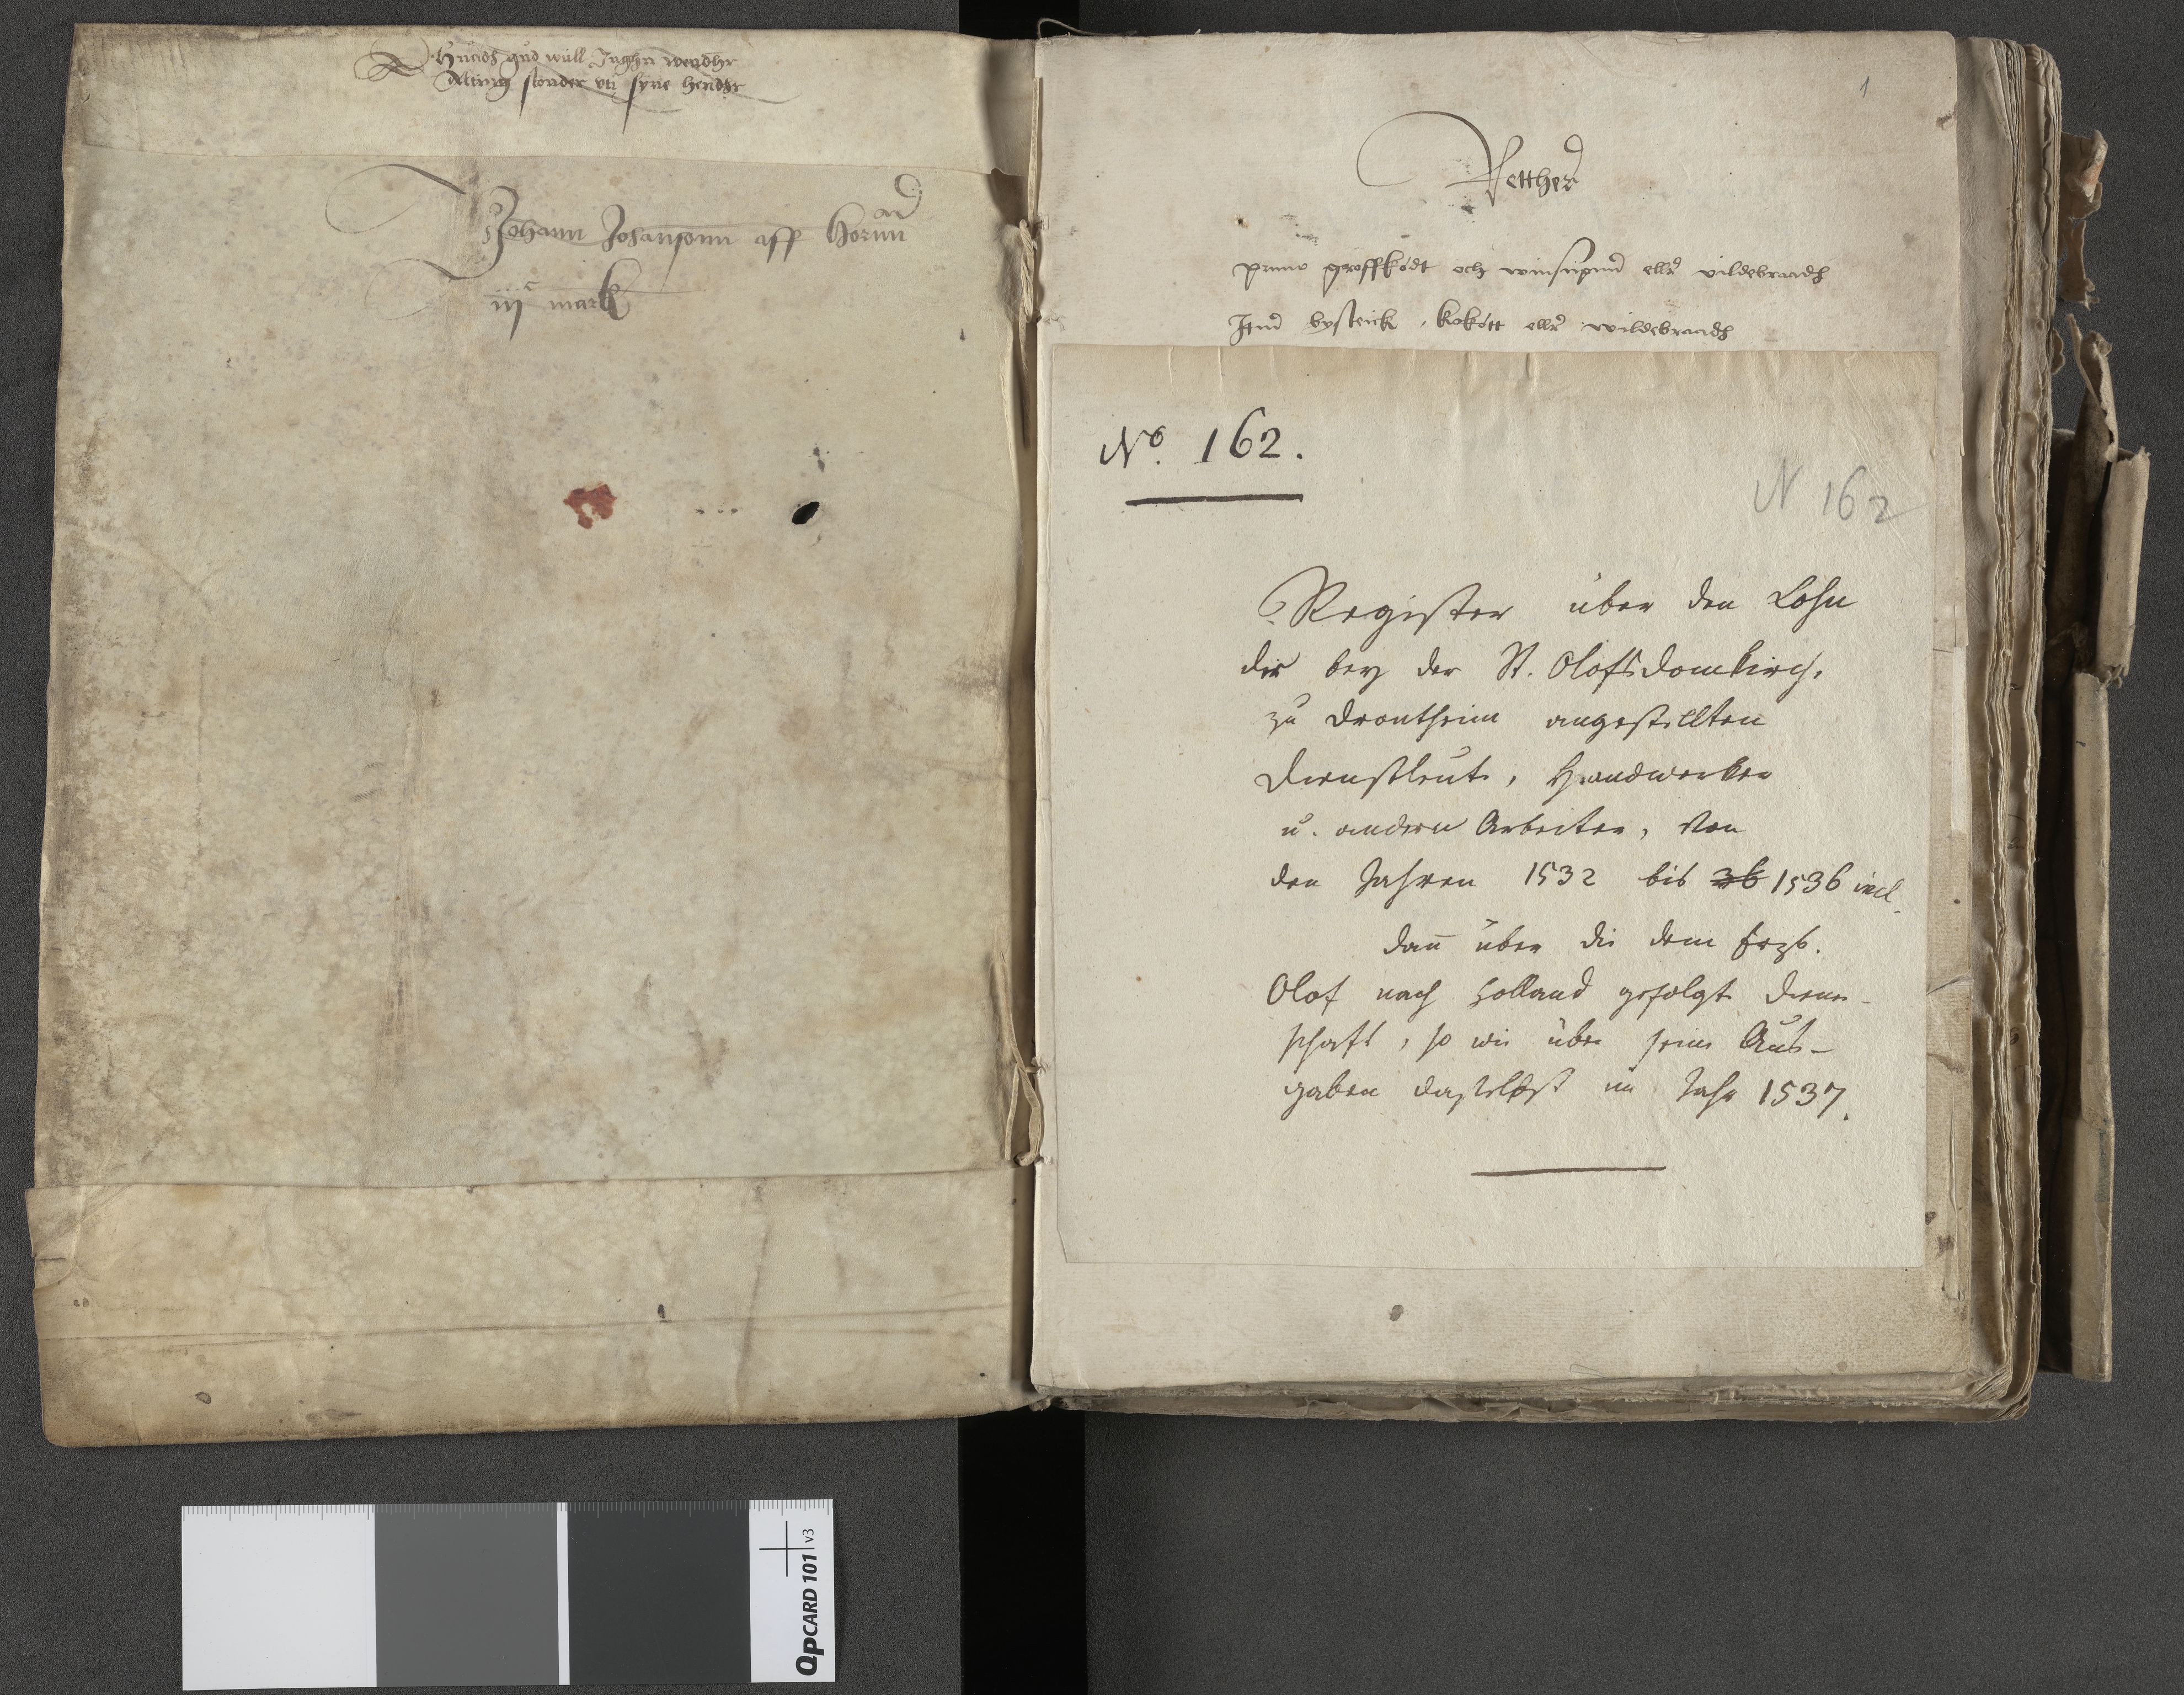 Huadh gud wüll Jnghn wendhr
Altingh stonder vti syne hendhr
Johann Johanson aff Hornn
ad
iijc mark
1
Retther
primo groffködt och ellr vildebraadh
Jtm bysteick, kokött ellr wildebraadh
No. 162.
N 162
Register über den Lohn
der bey der St. Olofsdomkirch.
zu Drontheim angestellten
Dienstleute, Handwerker
u. andern Arbeiter, von
den Jahren 1532 bis 36 1536 incl.
dan̄ über die dem Erzb.
Olof nach Holland gefolgte Diener-
schaft, so wie über seine Aus-
gaben daselbst im Jahr 1537.
QPCARD 101 v3